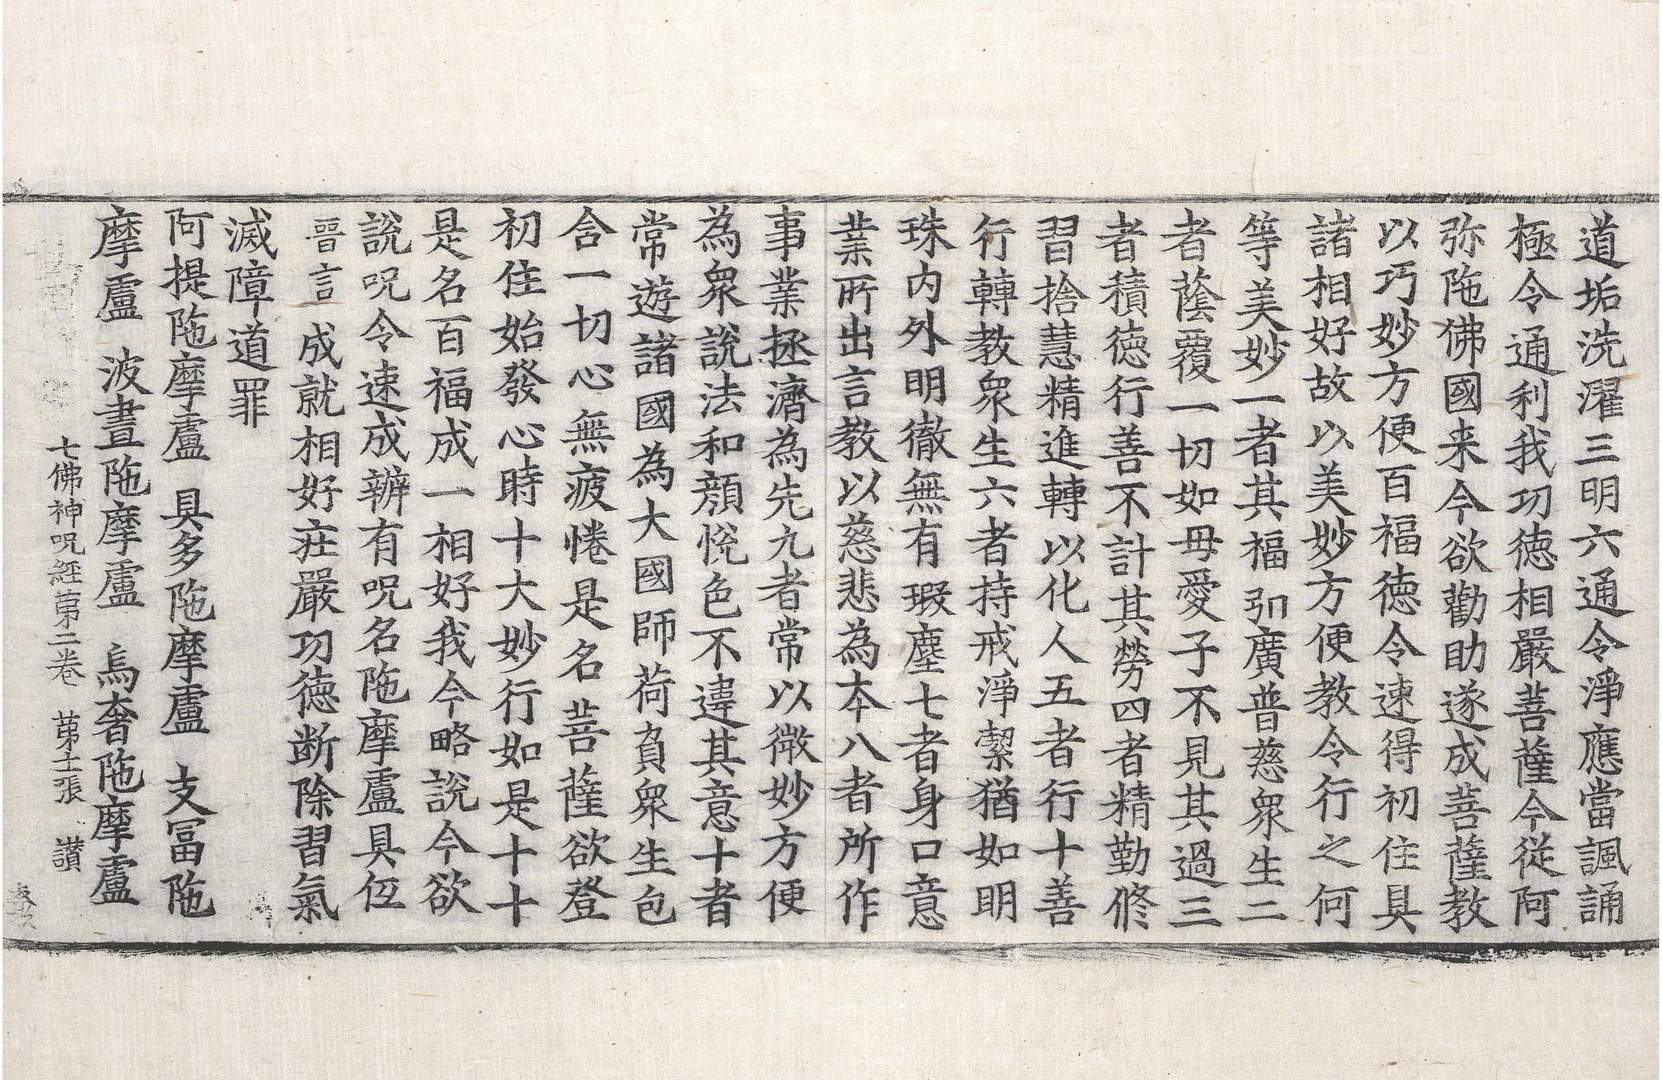 道垢洗濯三明六通令淨應當諷誦
極令通利我功徳相嚴菩薩今從阿
弥陁佛國来今欲勸助遂成菩薩教
以巧妙方便百福徳令速得初住具
諸相好故以美妙方便教令行之何
等美妙一者其福弘廣普慈衆生二
者蔭覆一切如母愛子不見其過三
者積徳行善不計其勞四者精勤修
習捨慧精進轉以化人五者行十善
行轉教衆生六者持戒淨潔猶如明
珠内外明徹無有瑕塵七者身口意
業所出言教以慈悲為本八者所作
事業拯濟為先九者常以微妙方便
為衆說法和顔悅色不違其意十者
常遊諸國為大國師荷負衆生包
含一切心無疲惓是名菩薩欲登
初住始發心時十大妙行如是十十
是名百福成一相好我今略說今欲
說呪令速成辦有呪名陁摩盧具低
晉言成就相好疘嚴功徳断除習氣
滅障道罪
阿提陁摩盧 具多陁摩盧 支冨陁
摩盧 波晝陁摩盧 烏奢陁摩盧
七佛神呪經苐二卷 苐土張 讃